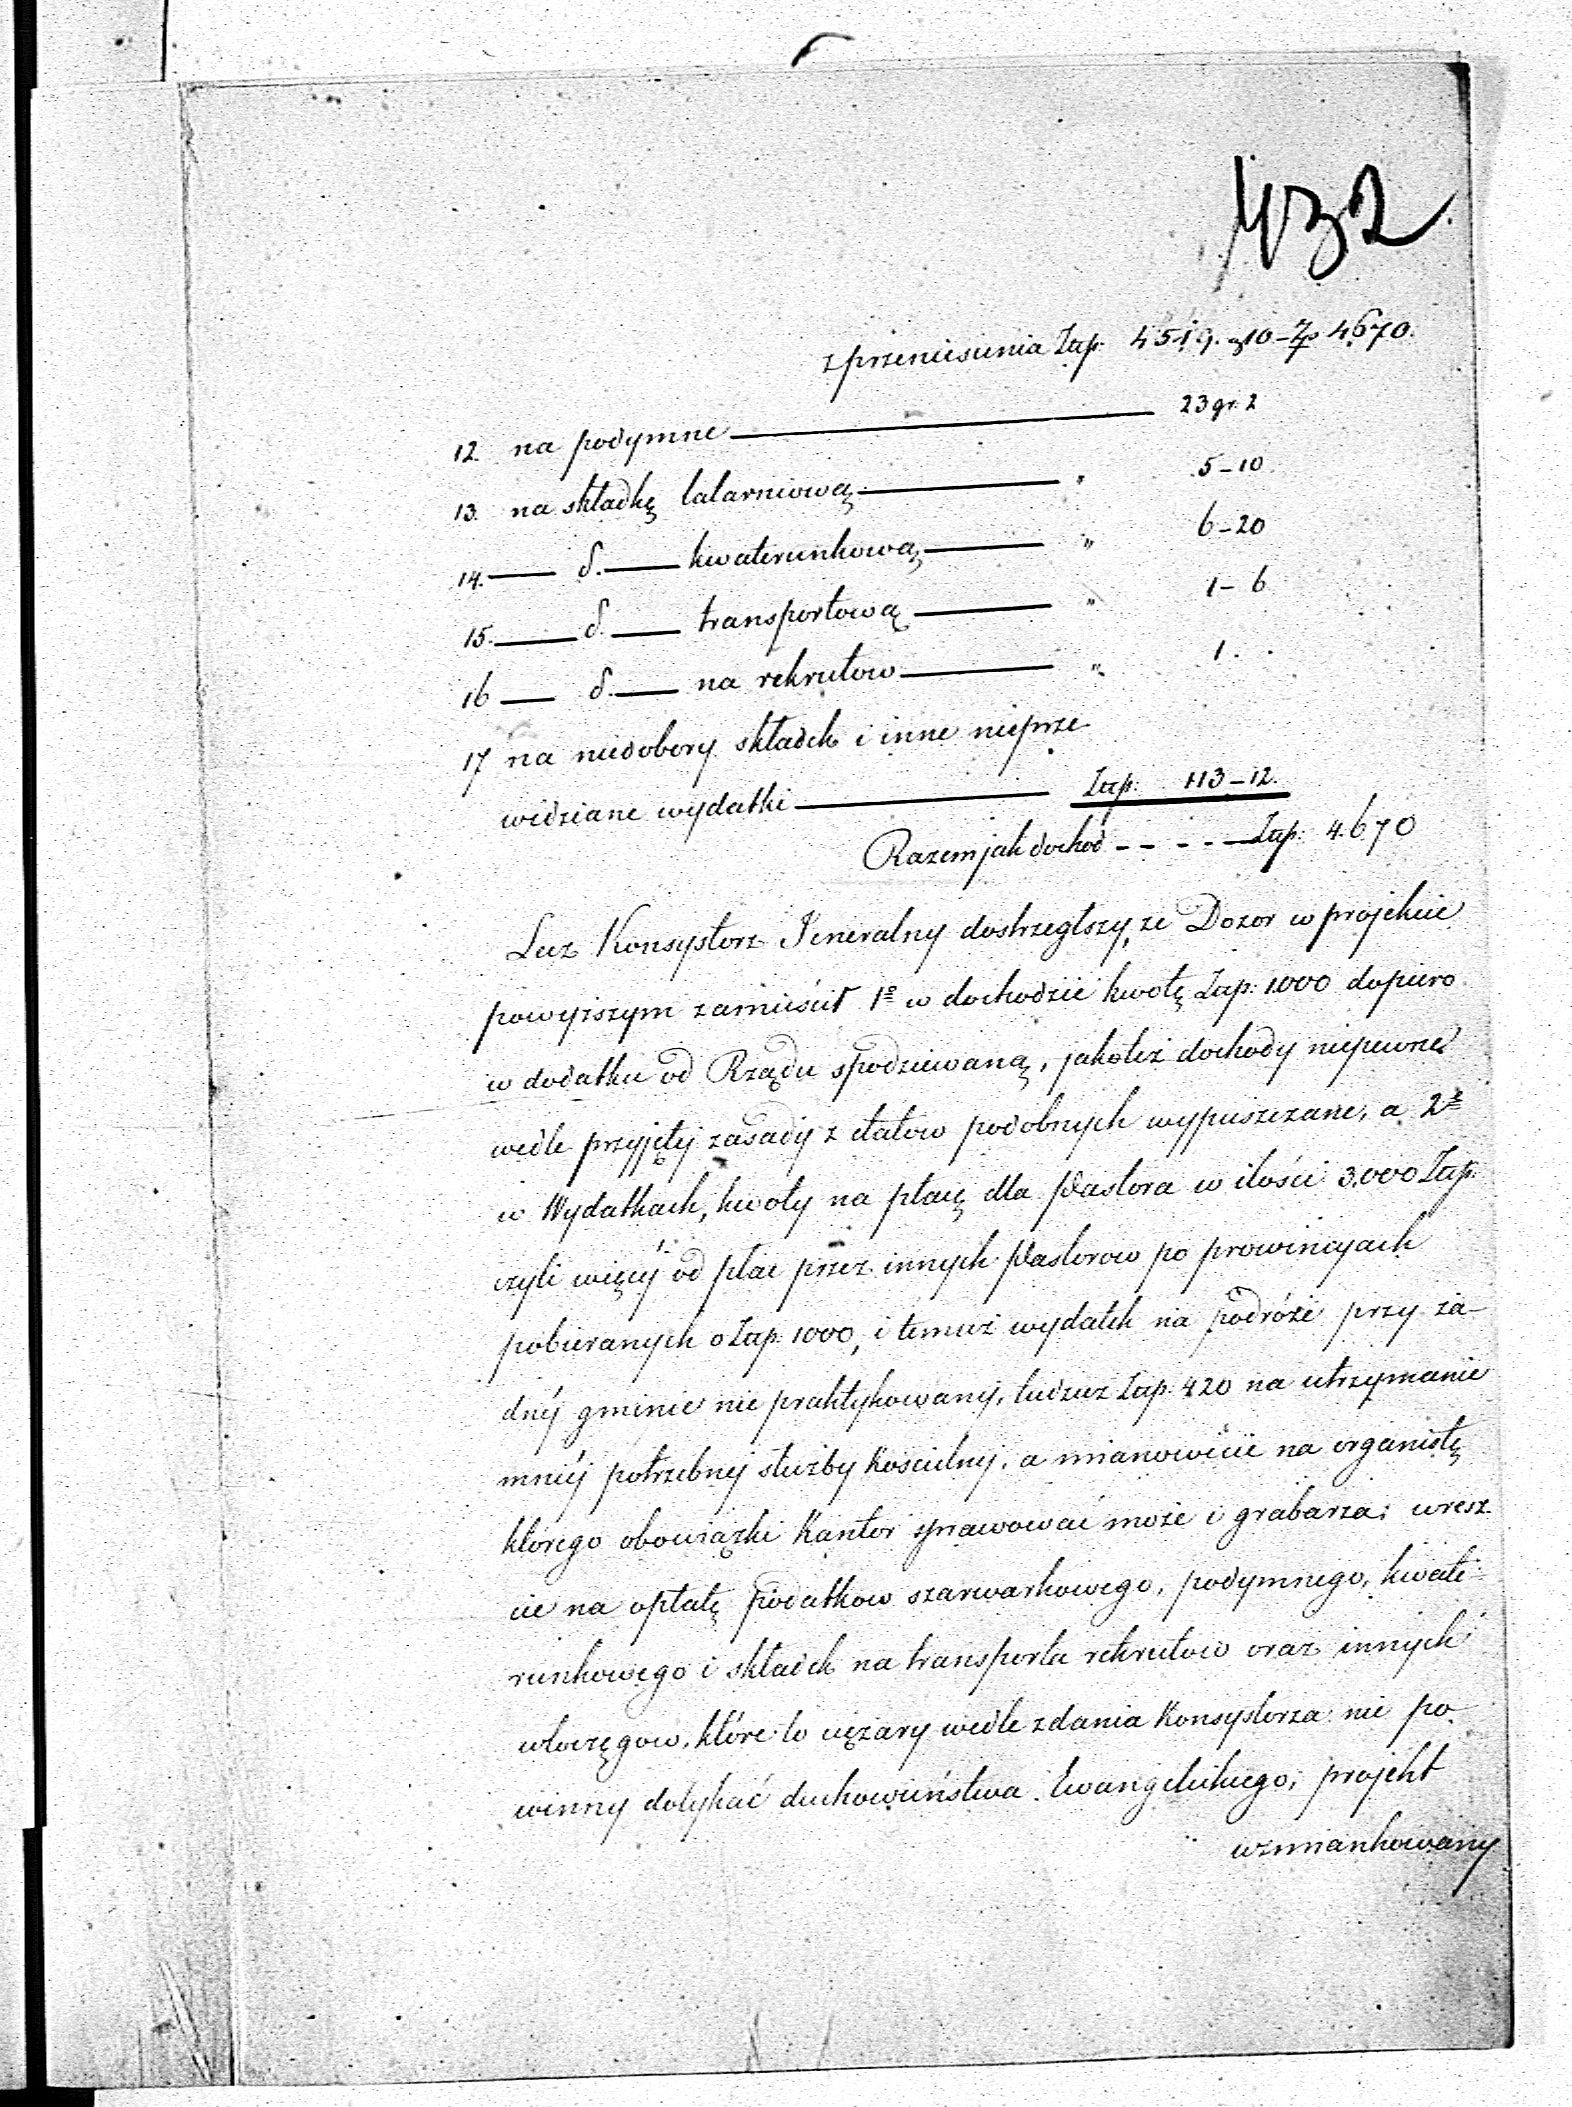 432
z przeniesienia Złp. 4519. gr 10 - Złp 4670.
12. na podymne 23 gr. 2
13. na składkę latarniową " 5-10
14. d. kwaterunkową " 6-20
15. d. transportową " 1-6
16 d. na rekrutow " 1. "
17 na niedobory składek i inne nieprze
widziane wydatki Złp. 113-12.
Razem jak dochod Złp. 4.670
Lecz Konsystorz Jeneralny dostrzegłszy, że Dozor w projekcie
powyższym zamieścił 1º w dochodzie kwotę Złp. 1000 dopiero
w dodatku od Rządu spodziewaną, jakoteż dochody niepewne
wedle przyjętej zasady z etatow podobnych wypuszczane, a 2º
w Wydatkach, kwoty na płacę dla Pastora w ilości 3.000 Złp.
czyli więcej od płac przez innych Pastorow po prowincyach
pobieranych o Złp. 1000, i temuż wydatek na podróże przy ża-
dnej gminie nie praktykowany, tudzież Złp. 420 na utrzymanie
mniej potrzebnej służby Kościelnej, a mianowicie na organistę
ktorego obowiązki Kantor sprawować może i grabarza; wresz-
cie na opłatę podatkow szarwarkowego, podymnego, kwate-
runkowego i składek na transporta rekrutow oraz innych
włoczęgow, które to ciężary wedle zdania Konsystorza nie po-
winny dotykać duchowieństwa Ewangelickiego, projekt
wzmiankowany